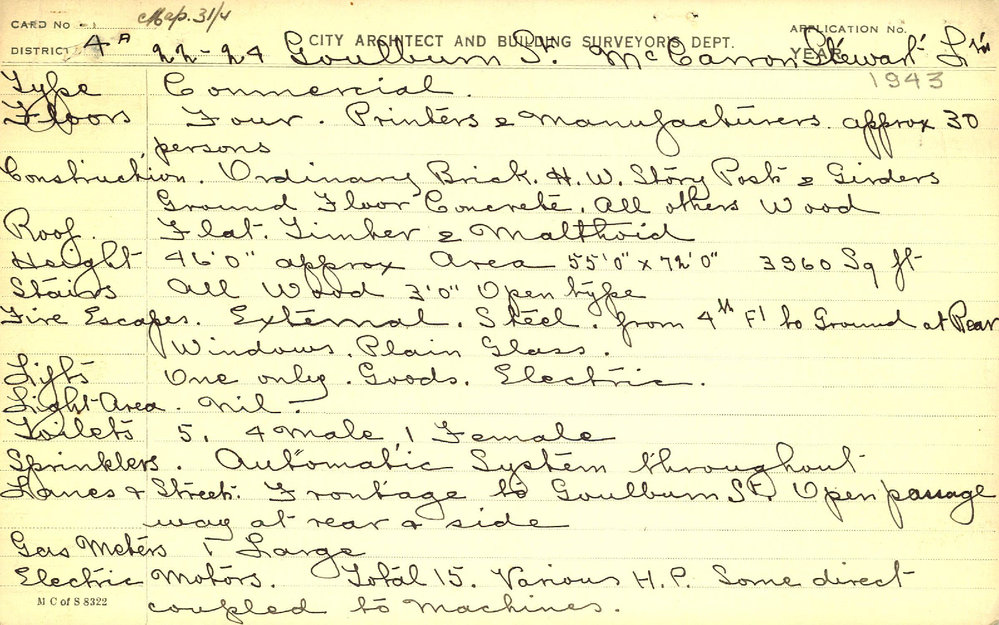 CARD No Map. 31/4 APPLICATION No.
DISTRICT 4A CITY ARCHITECT AND BUILDING SURVEYORS DEPT. YEAR
22-24 Goulburn St. McCarron Stewart Ltd
1943
Type Commercial.
Floors Four. Printers & Manufacturers. approx 30
persons
Construction. Ordinary Brick. H.W. Story Posts & Girders
Ground Floor Concrete. All others Wood
Roof. Flat. Timber & Malthoid
Height 46'0" approx Area 55'0" x 72'0" 3960 Sq ft
Stairs All Wood 3'0" Open type
Fire Escapes. External. Steel. from 4th Fl to Ground at Rear
Windows. Plain Glass.
Lifts One only. Goods. Electric.
Light Area. Nil.
Toilets 5. 4 Male, 1 Female
Sprinklers. Automatic System throughout
Lanes & Street. Frontage to Goulburn St. Open passage
way at rear & side
Gas Meters 1 Large
Electric Motors. Total 15. Various H.P. Some direct
M C of S 8322 coupled to Machines.